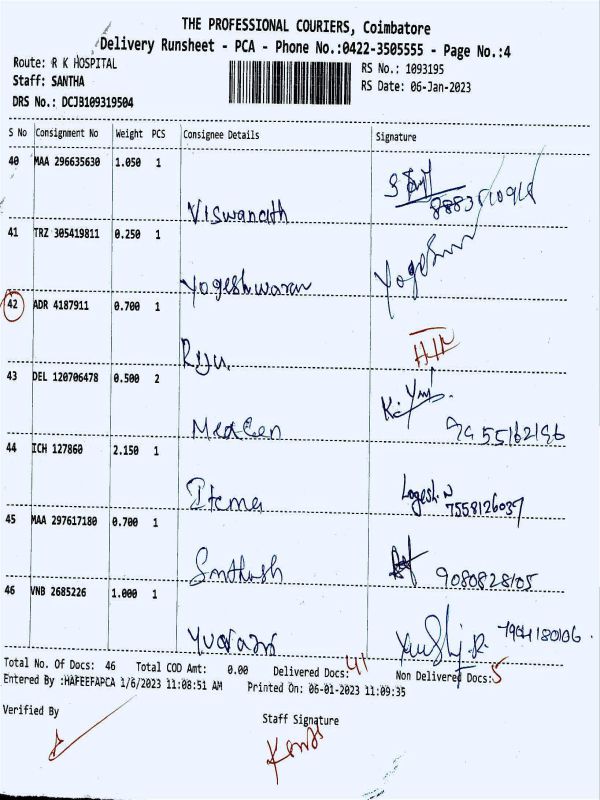 THE PROFESSIONAL COURIERS, Coimbatore
Delivery Runsheet - PCA - Phone No.:0422-3505555 - Page No.:4
Route: R K HOSPITAL
RS No.: 1093195
Staff: SANTHA
RS Date: 06-Jan-2023
DRS No.: DCJB109319504
S No Consignment No Weight PCS Consignee Details Signature
40 MAA 296635630 1.050 1
Viswanath
41 TRZ 305419811 0.250 1
Yogeshwaran
42 ADR 4187911 0.700 1
Riju
43 DEL 120706478 0.500 2
K.
Medcen 9455162196
44 ICH 127860 2.150 1
Logesh.N
7558126037
45 MAA 297617180 0.700 1
Santhosh 9080828105
46 VNB 2685226 1.000 1
Total No. Of Docs: 46 Total COD Amt: 0.00 Delivered Docs: 41 Non Delivered Docs: 5
Entered By :HAFEEFAPCA 1/6/2023 11:08:51 AM Printed On: 06-01-2023 11:09:35
Verified By
Staff Signature